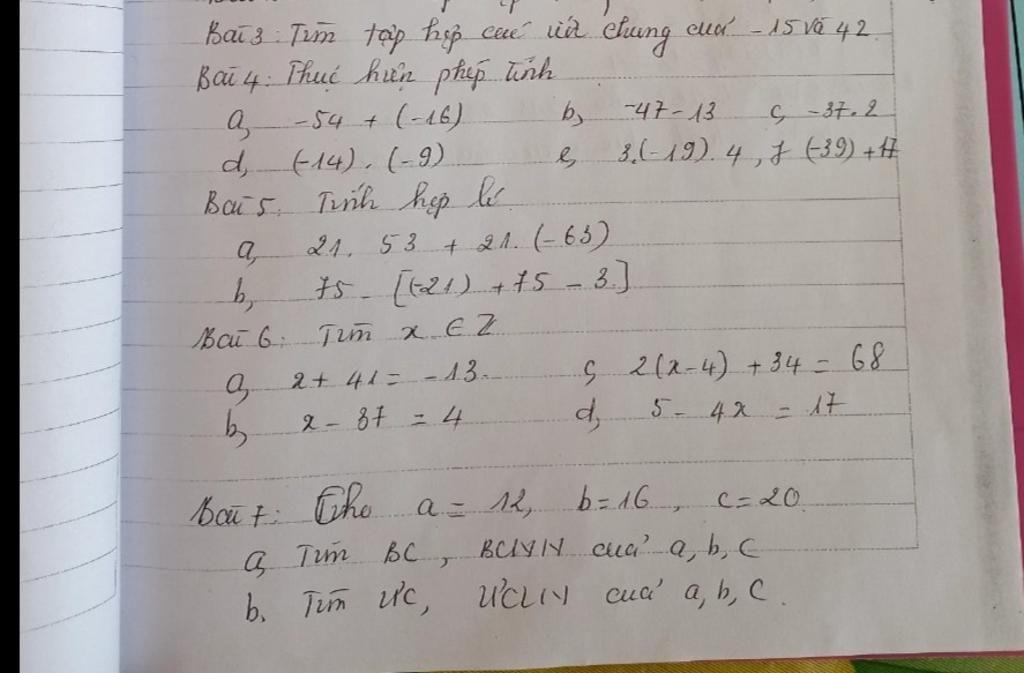 Bài 3: Tìm tập hợp các ước chung của -15 và 42
Bài 4: Thực hiện phép tính
a, -54 + (-16) b, -47 - 13 c, -37.2
d, (-14).(-9) e, 3.(-19).4, f (-39) + 17
Bài 5: Tính hợp lí
a, 21. 53 + 21. (-63)
b, 75 - [(-21) + 75 - 3]
Bài 6: Tìm x ∈ Z
a, x + 41 = -13. c, 2(x-4) + 34 = 68
b, x - 37 = 4 d, 5 - 4x = 17
Bài 7: Cho a = 12, b = 16, c = 20
a, Tìm BC, BCNN của a, b, c
b. Tìm ƯC, ƯCLN của a, b, c.